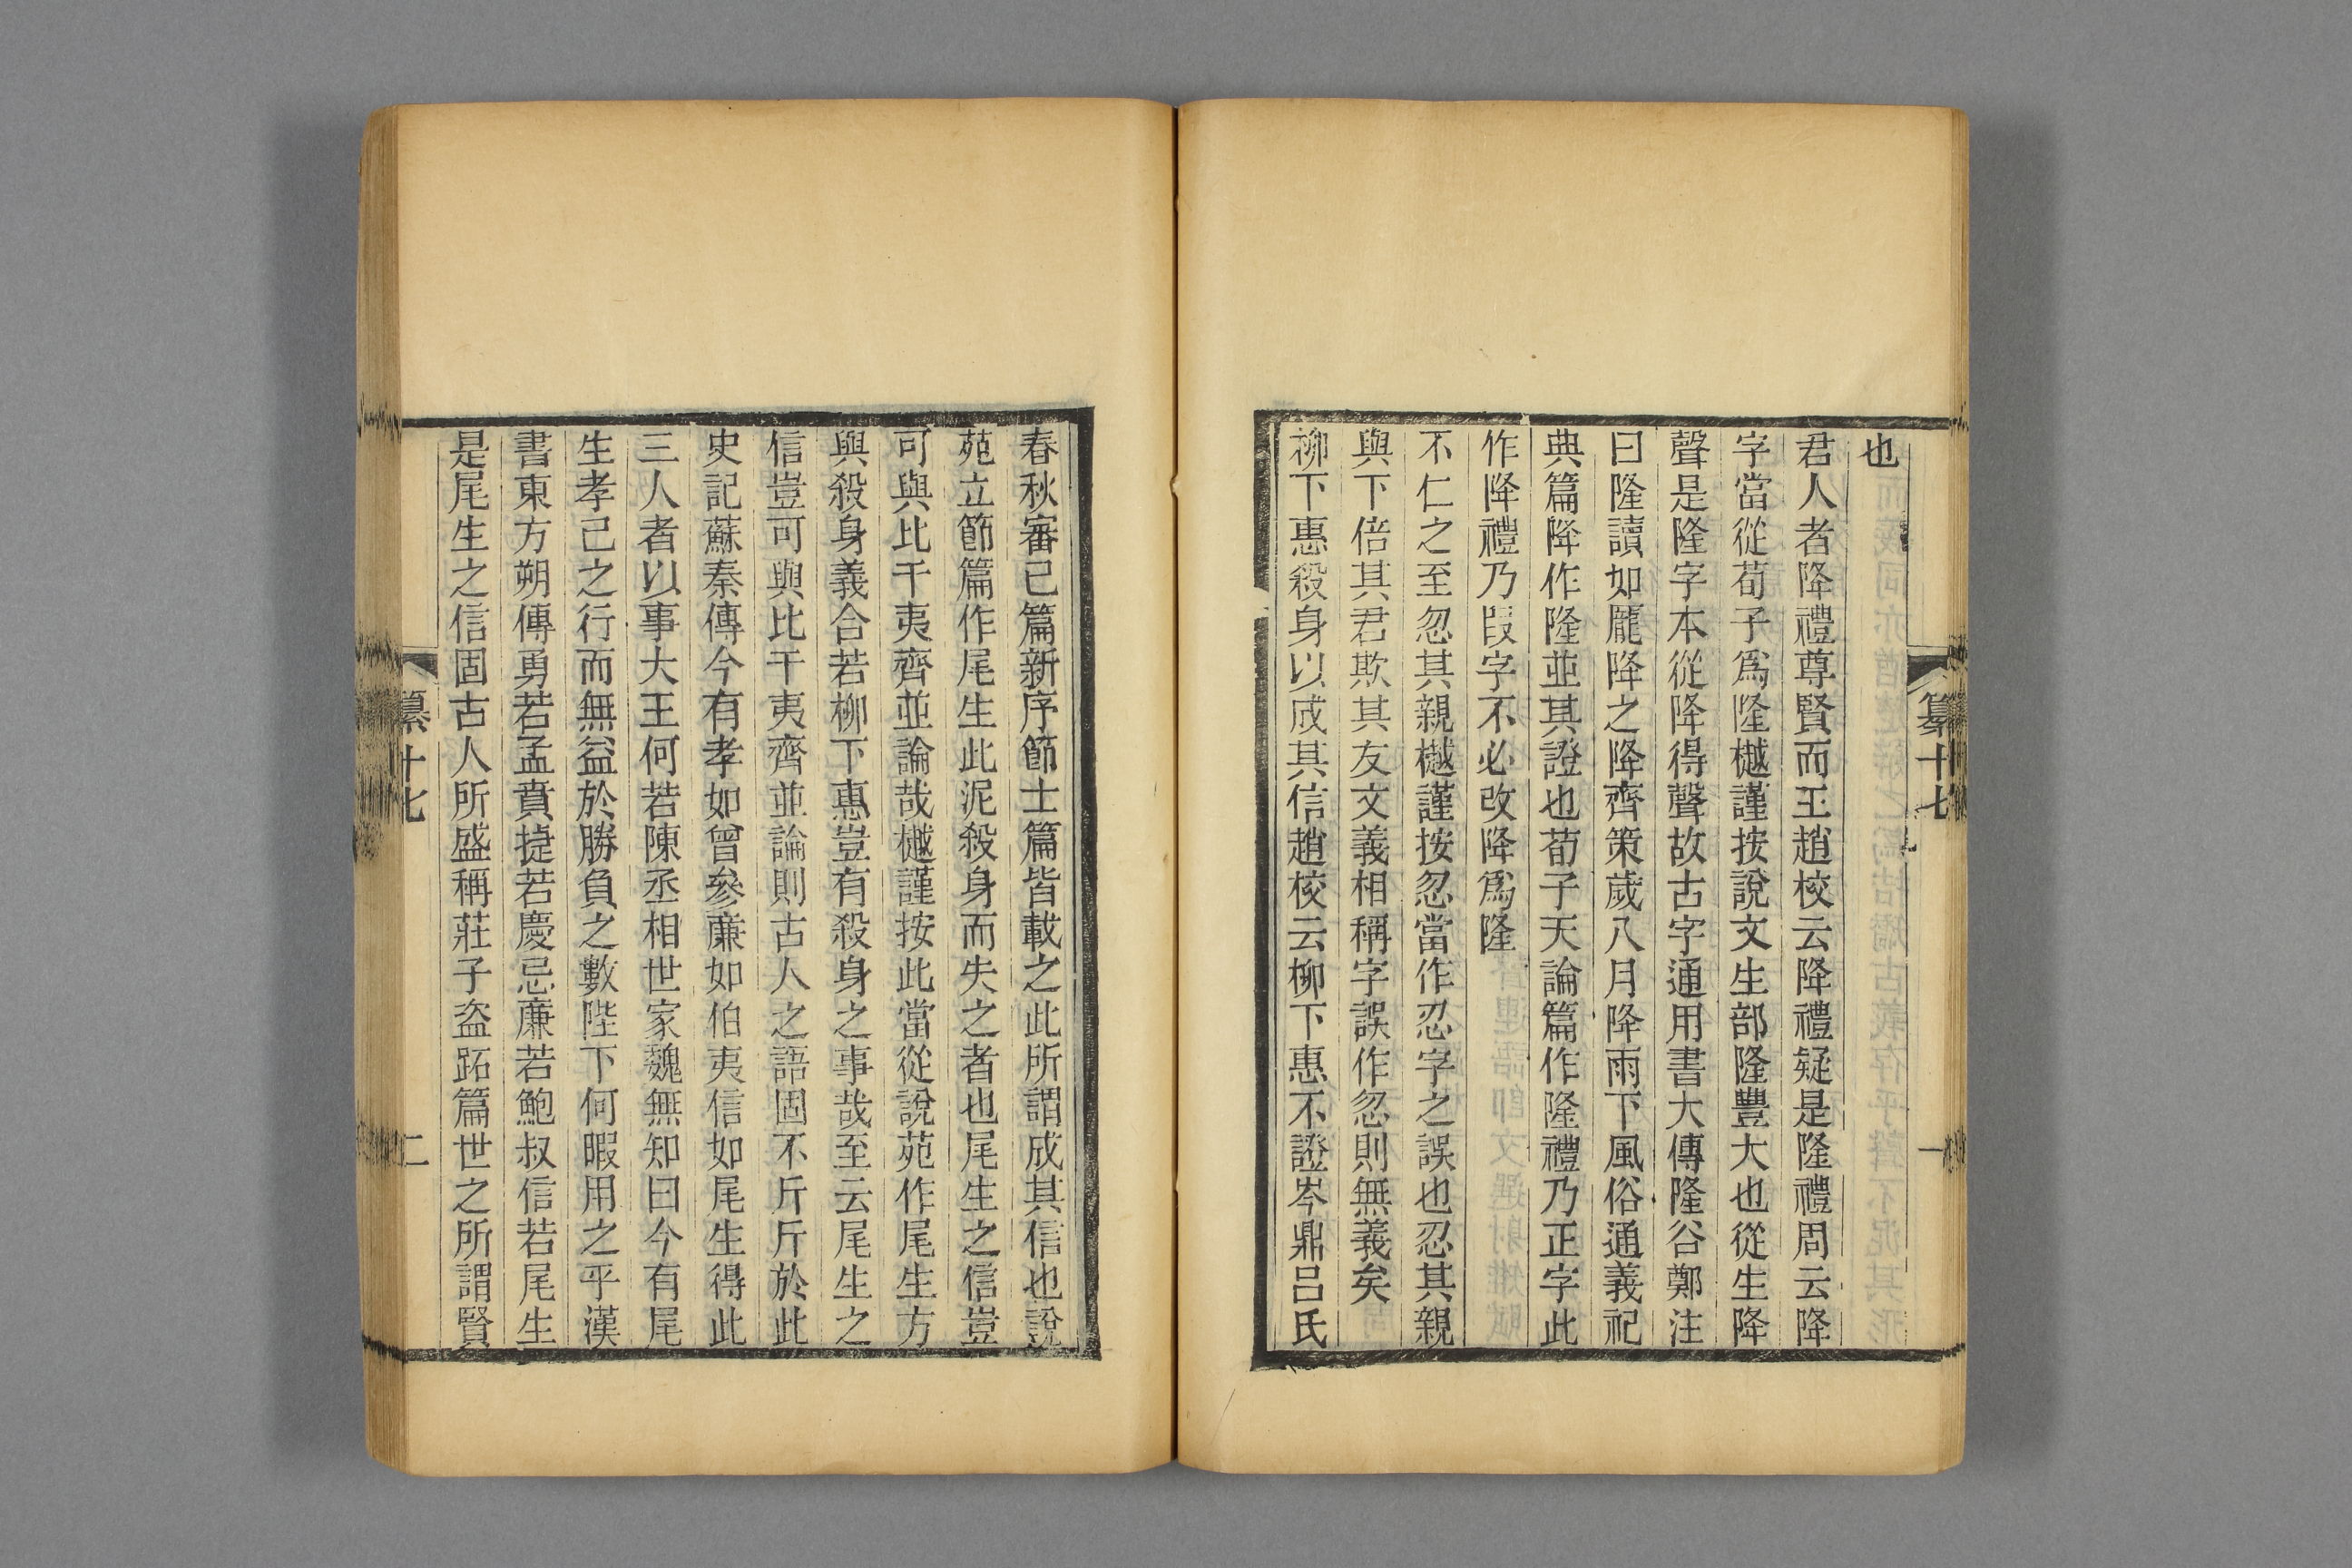 纂十七
一
也
君人者降禮尊賢而王趙校云降禮疑是隆禮周云降
字當從荀子爲隆樾謹按說文生部隆豐大也從生降
聲是隆字本從降得聲故古字通用書大傳隆谷鄭注
曰隆讀如龎降之降齊策歲八月降雨下風俗通義祀
典篇降作隆並其證也荀子天論篇作隆禮乃正字此
作降禮乃叚字不必改降爲隆
不仁之至忽其親樾謹按忽當作忍字之誤也忍其親
與下倍其君欺其友文義相稱字誤作忽則無義矣
柳下惠殺身以成其信趙校云柳下惠不證岑鼎呂氏
春秋審己篇新序節士篇皆載之此所謂成其信也說
苑立節篇作尾生此泥殺身而失之者也尾生之信豈
可與比干夷齊並論哉樾謹按此當從說苑作尾生方
與殺身義合若柳下惠豈有殺身之事哉至云尾生之
信豈可與比干夷齊並論則古人之語固不斤斤於此
史記蘇秦傳今有孝如曾參廉如伯夷信如尾生得此
三人者以事大王何若陳丞相世家魏無知曰今有尾
生孝己之行而無益於勝負之數陛下何暇用之乎漢
書東方朔傳勇若孟賁捷若慶忌廉若鮑叔信若尾生
是尾生之信固古人所盛稱莊子盜跖篇世之所謂賢
纂十七
二